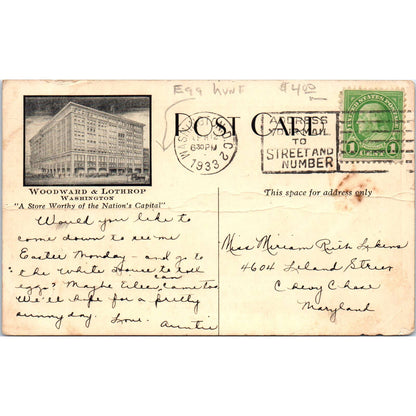 Egg hunt $4.00
POST CARD
WASHINGTON, D.C. 2
630 PM
1933
ADDRESS
YOUR MAIL
TO
STREET AND
NUMBER
1 1
WOODWARD & LOTHROP
WASHINGTON
"A Store Worthy of the Nation's Capital"
This space for address only
Would you like to
come down to see me
Easter Monday – and go to
the White House to roll
eggs? Maybe Eileen can come too
We'll hope for a pretty
sunny day. Love
Auntie
Miss Miriam Ruth
4604 Leland Street
Chevy Chase
Maryland